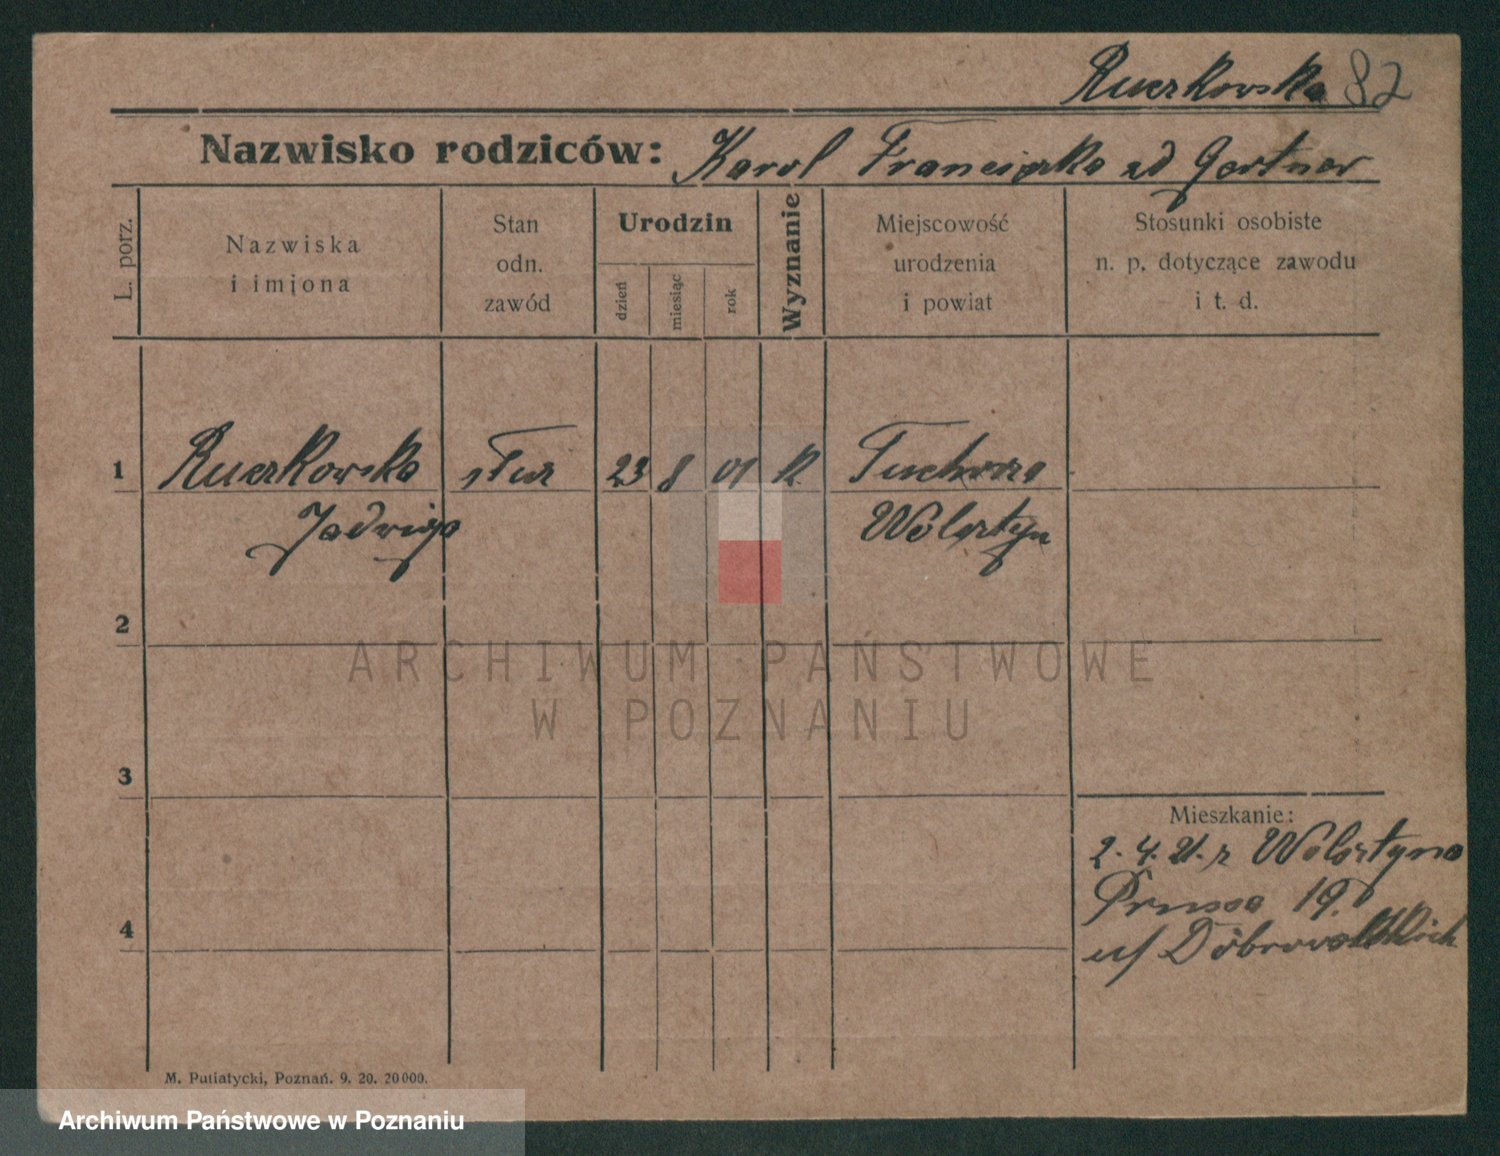 Ruszkowska 82
Nazwisko rodziców: Karol Franciszka zd Gartner
L. porz.
Nazwiska
i imiona
Stan
odn.
zawód
Urodzin
dzień
miesiąc
rok
Wyznanie
Miejscowość
urodzenia
i powiat
Stosunki osobiste
n. p. dotyczące zawodu
i t. d.
1 Ruszkowska słuz 23 8 01 k. Tuchorza
Jadwiga Wolsztyn
2
3
4
Mieszkanie:
2.4.21. z Wolsztyna
Prusa 19.
u/ Dobrowolskich
M. Putiatycki, Poznań. 9. 20. 20000.
ARCHIWUM PAŃSTWOWE
W POZNANIU
Archiwum Państwowe w Poznaniu